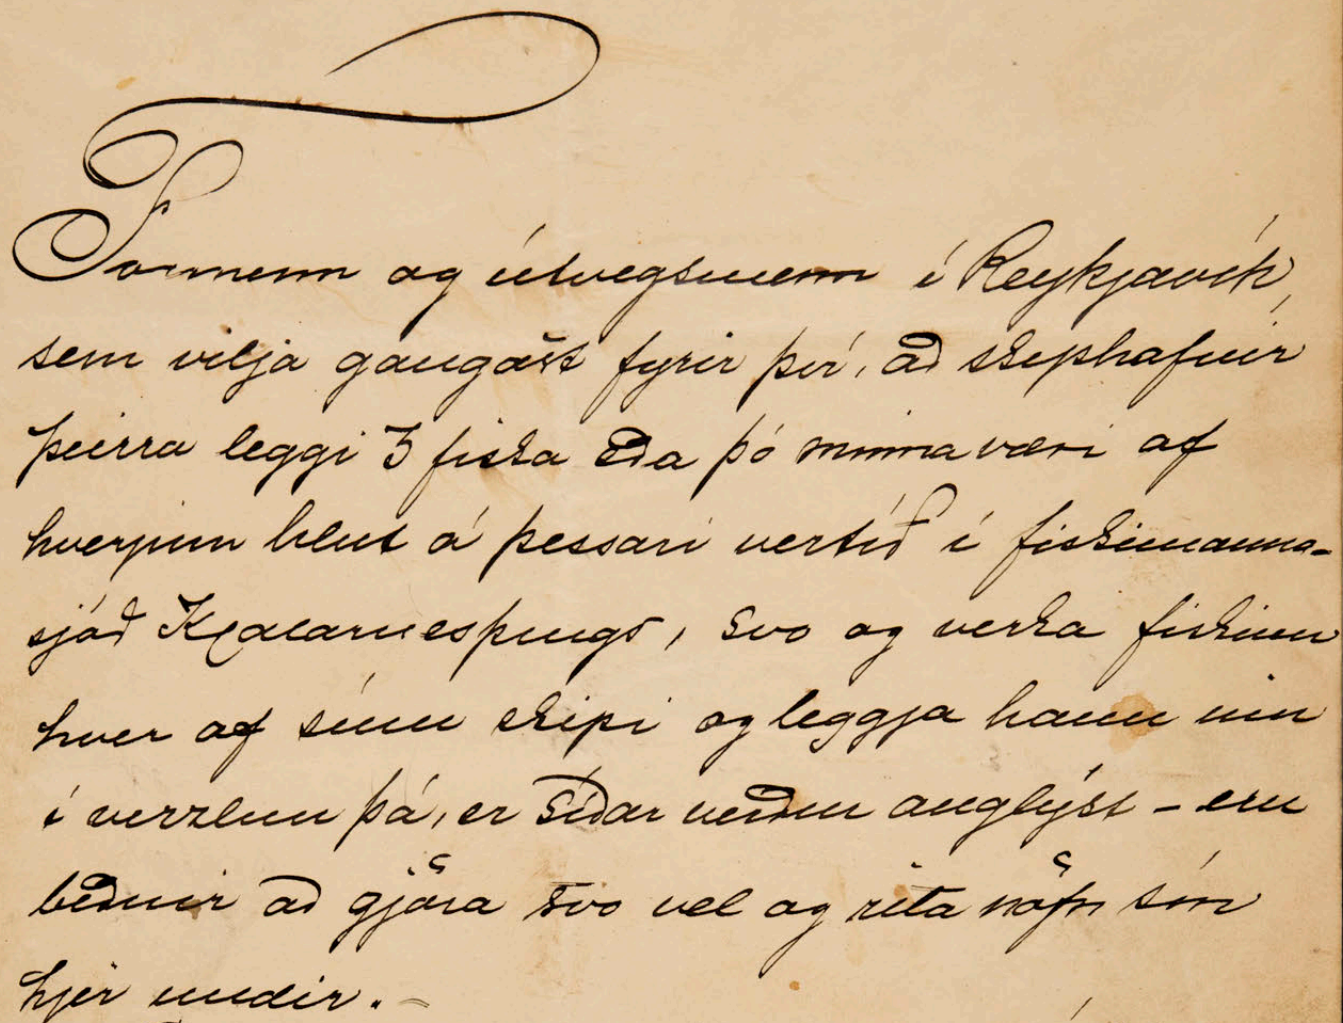 Formenn og útvegsmenn í Reykjavík,
sem vilja gangast fyrir því, að skipshafnir
þeirra leggi 3 fiska eða þó minna væri af
hverjum hlut á þessari vertíð í fiskimanna-
sjóð Kjalarnesþings, svo og verka fiskinn
hver af sínu skipi og leggja hann inn
í verzlun þá, er síðar verður auglýst – eru
beðnir að gjöra svo vel og rita nöfn sín
hjer undir. –